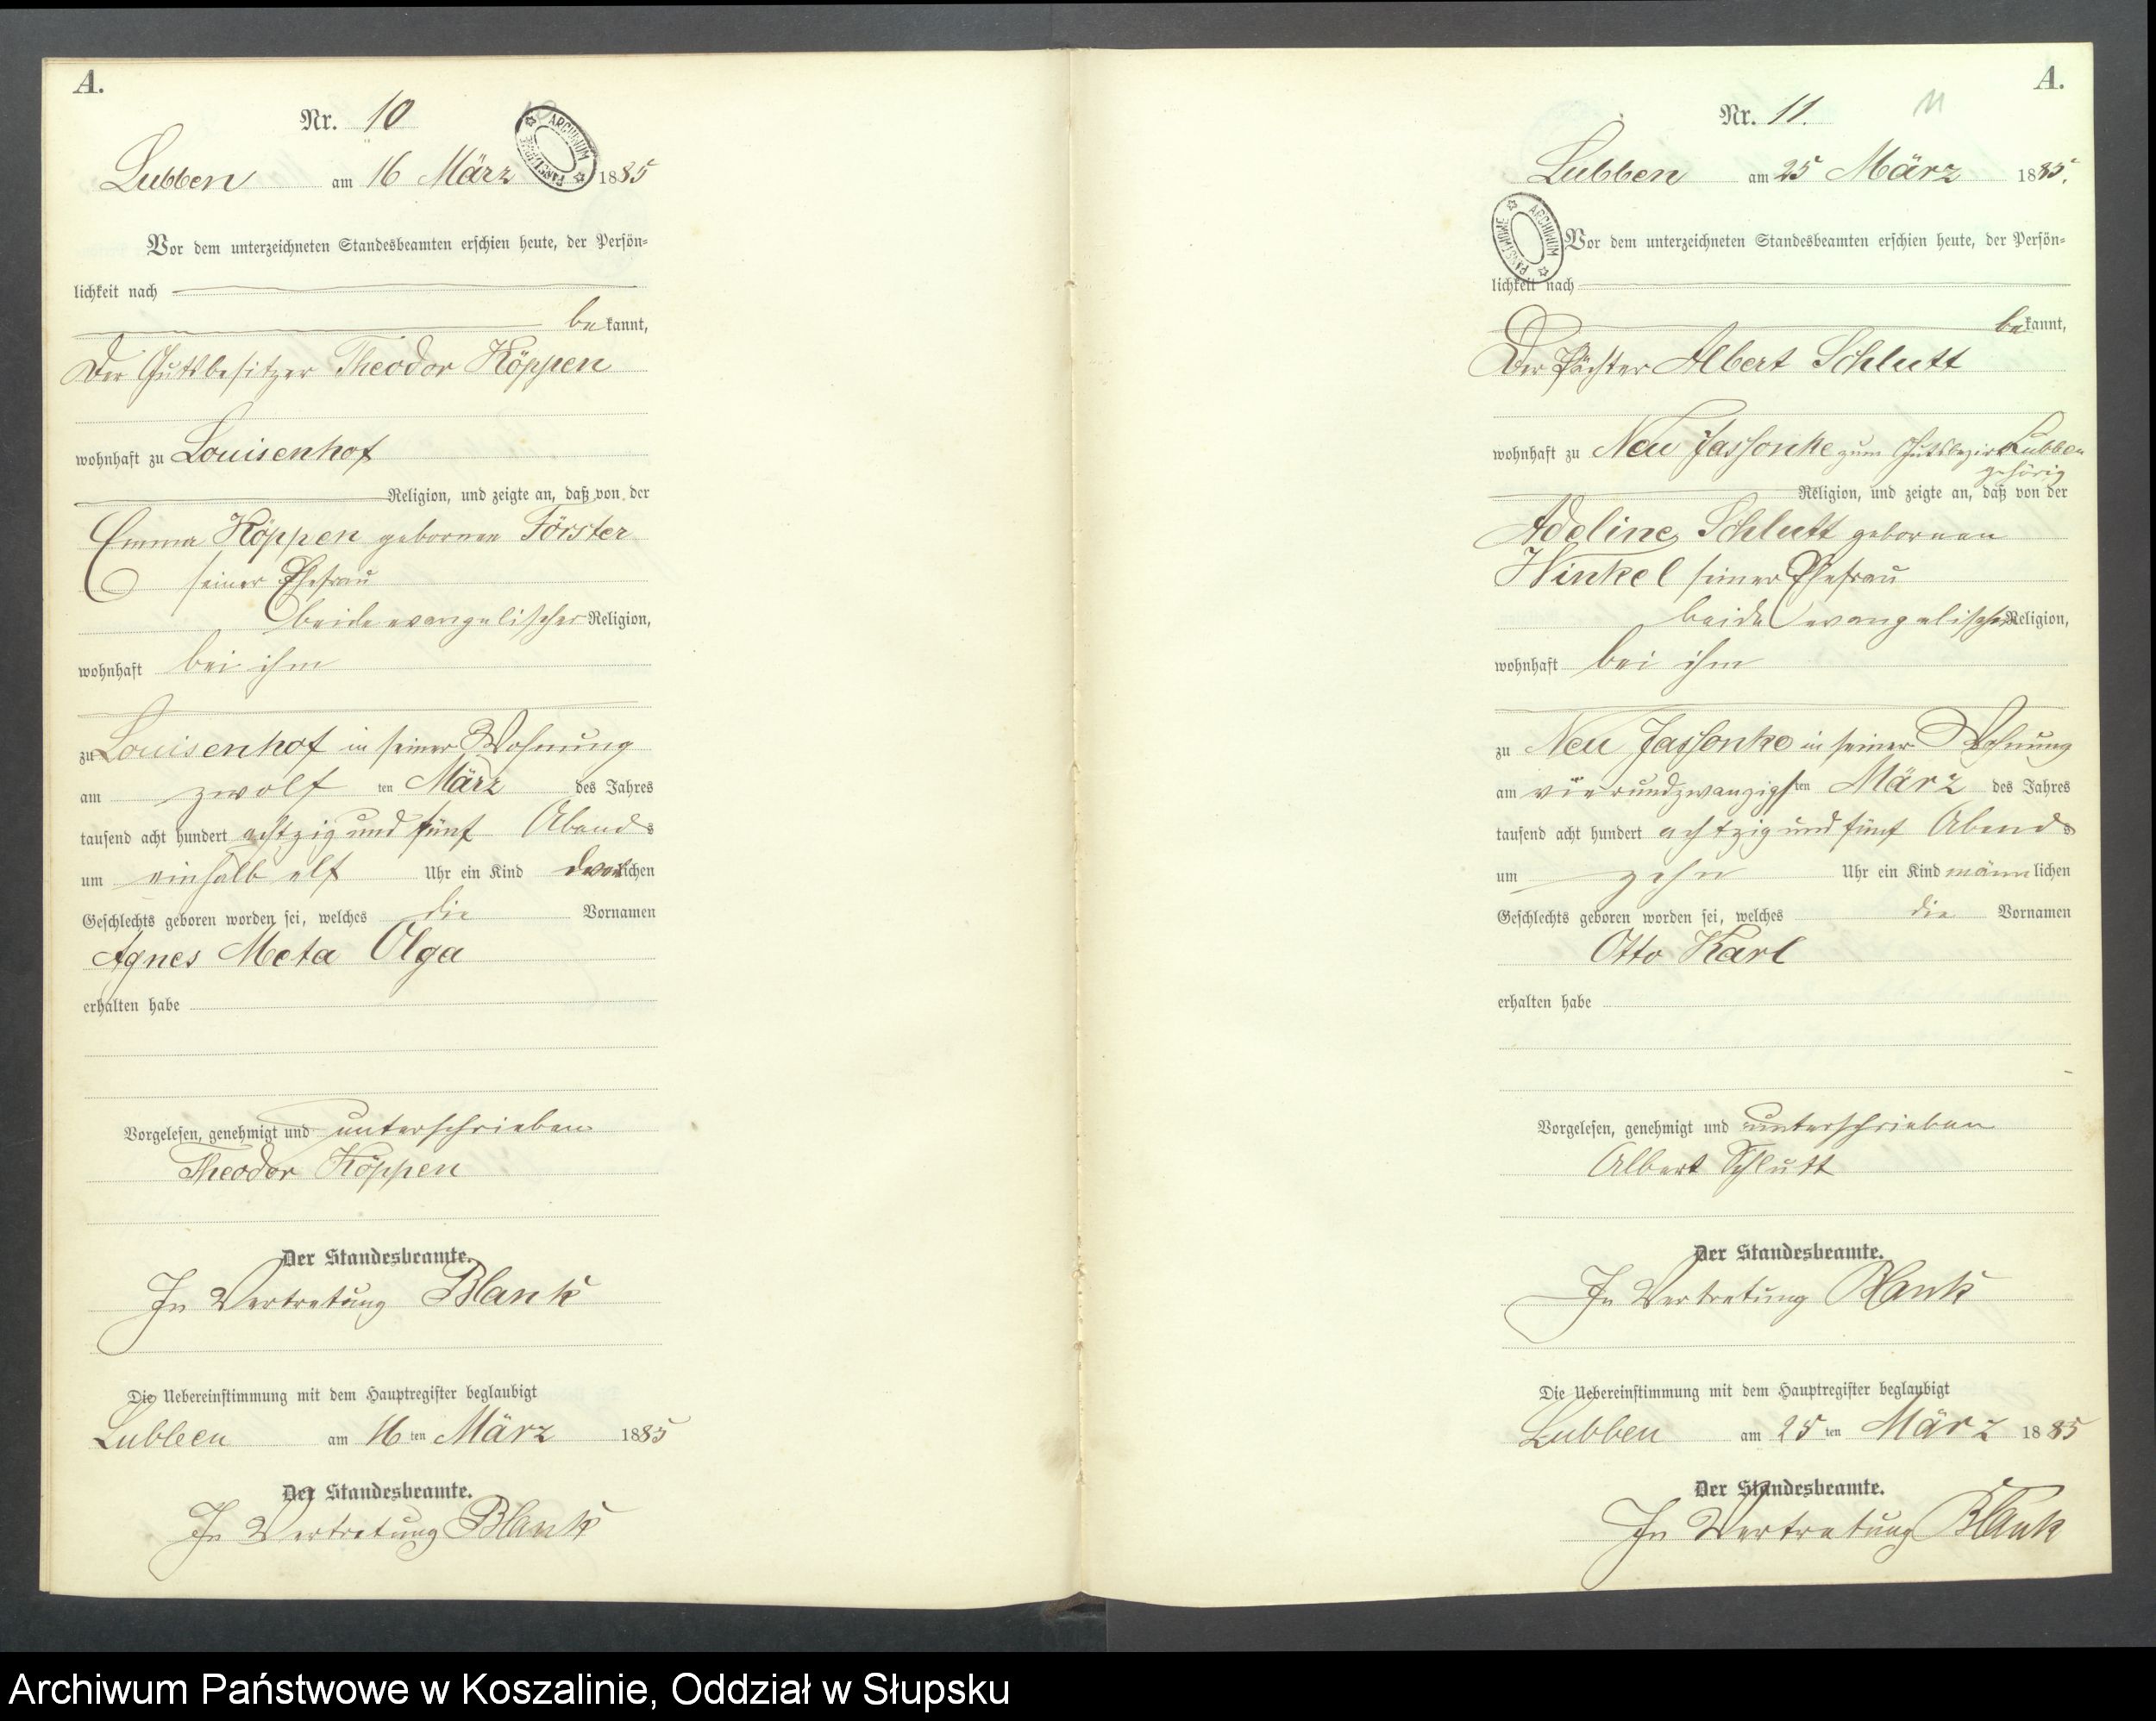 A.
Nr. 10
ARCHIWUM PAŃSTWOWE
Lubben am 16 März 1885
Vor dem unterzeichneten Standesbeamten erschien heute, der Persön=
lichkeit nach
bekannt,
Der Gutsbesitzer Theodor Köppen
wohnhaft zu Louisenhof
Religion, und zeigte an, daß von der
Emma Köppen gebornen Förster
seiner Ehefrau
beide evangelischer Religion,
wohnhaft bei ihm
zu Louisenhof in seiner Wohnung
am zwölf ten März des Jahres
tausend acht hundert achtzig und fünf Abends
um einhalb elf Uhr ein Kind lichen
Geschlechts geboren worden sei, welches die Vornamen
Agnes Meta Olga
erhalten habe
Vorgelesen, genehmigt und unterschrieben
Theodor Köppen
Der Standesbeamte.
In Vertretung Blank
Die Uebereinstimmung mit dem Hauptregister beglaubigt
Lubben am 16 ten März 1885
Der Standesbeamte.
In Vertretung Blank
A.
Nr. 11. 11
Lubben am 25 März 1885.
ARCHIWUM PAŃSTWOWE
Vor dem unterzeichneten Standesbeamten erschien heute, der Persön=
lichkeit nach
bekannt,
Der Pächter Albert Schlutt
wohnhaft zu Neu Jassonke zum Gutsbezirk Lubben
gehörig
Religion, und zeigte an, daß von der
Adeline Schlutt gebornen
Winkel seiner Ehefrau
beide evangelischer Religion,
wohnhaft bei ihm
zu Neu Jassonke in seiner Wohnung
am vierundzwanzigsten März des Jahres
tausend acht hundert achtzig und fünf Abends
um zehn Uhr ein Kind männlichen
Geschlechts geboren worden sei, welches die Vornamen
Otto Karl
erhalten habe
Vorgelesen, genehmigt und unterschrieben
Albert Schlutt
Der Standesbeamte.
In Vertretung Blank
Die Uebereinstimmung mit dem Hauptregister beglaubigt
Lubben am 25 ten März 1885
Der Standesbeamte.
In Vertretung Blank
Archiwum Państwowe w Koszalinie, Oddział w Słupsku